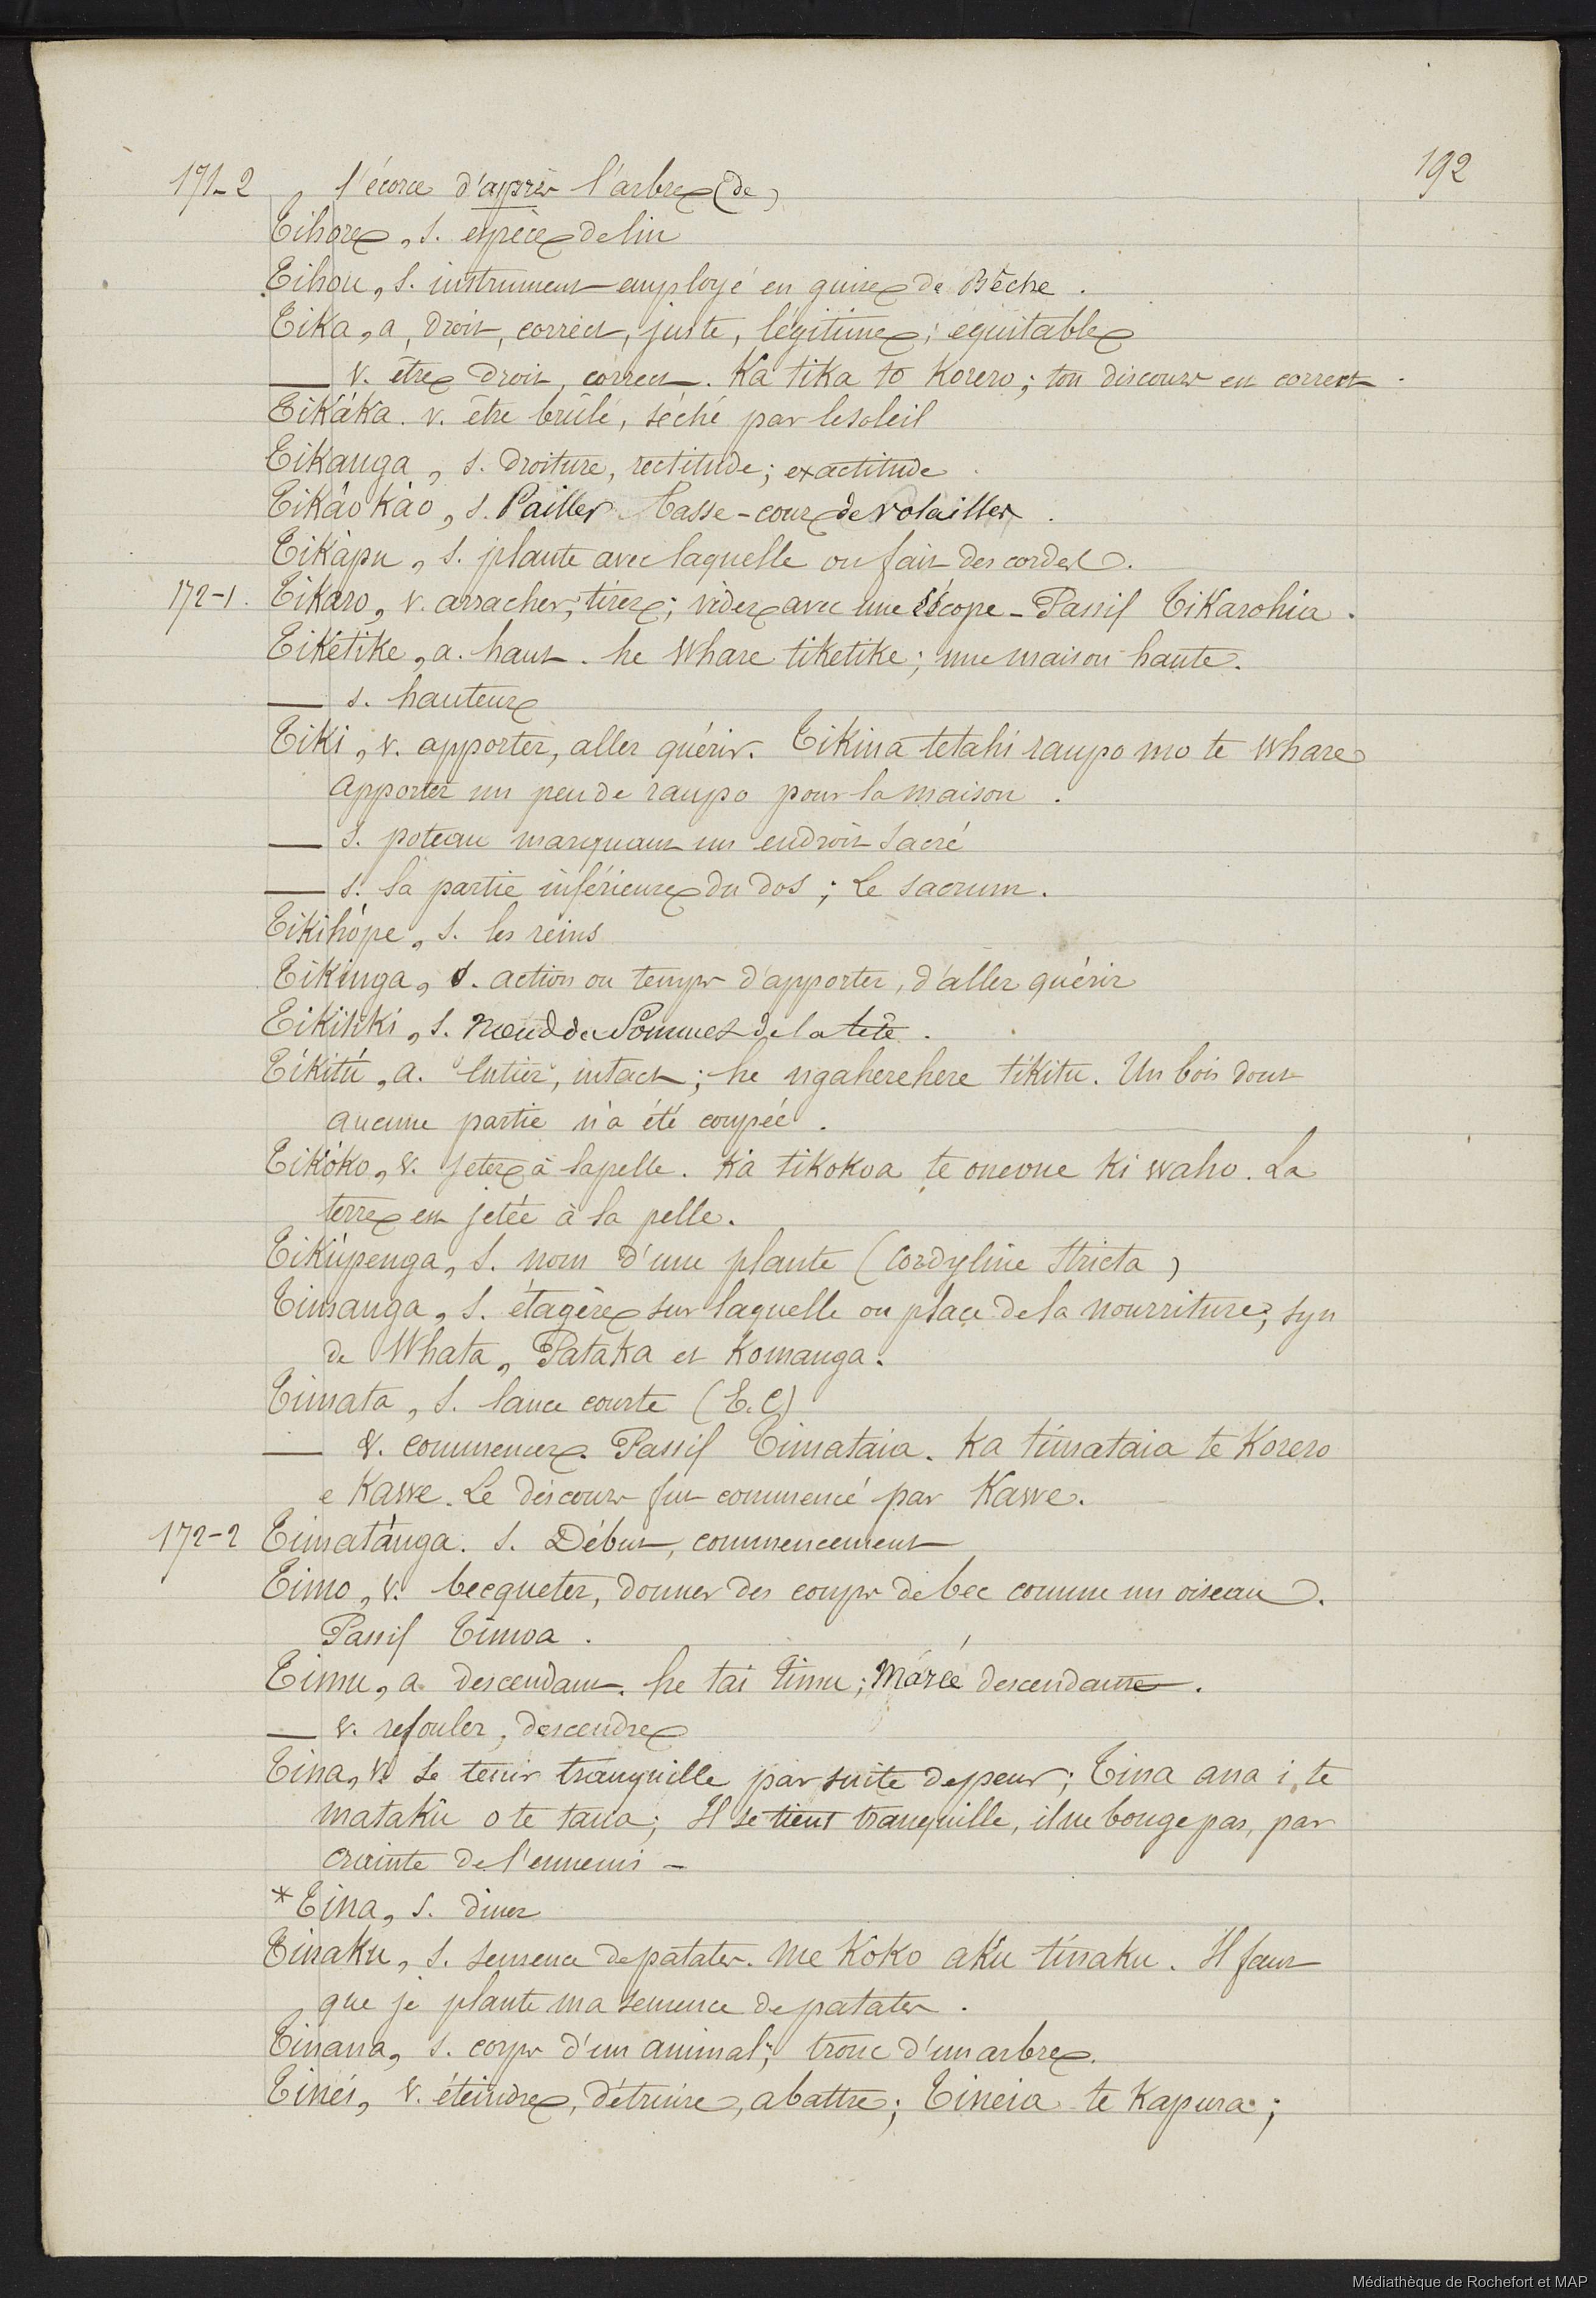 192
171-2 , l'écorce d'après l'arbre (de)
Tihore, s. espèce de lin
Tihou, s. instrument employé en guise de Bêche.
Tika, a, droit, correct, juste, légitime; équitable
— v. être droit, correct. Ka tika to Korero; ton discours est correct.
Tikáka. v. être brûlé, séché par le soleil
Tikanga, s. droiture, rectitude; exactitude
Tikáokáo, s. Pailler basse-cour de volailles.
Tikàpu, s. plante avec laquelle on fait des cordes.
172-1. Tikaro, v. arracher; tirer; vider avec une Escope - Passif Tikarohia.
Tiketike, a. haut. he Whare tiketike; une maison haute.
— s. hauteur
Tiki, v. apporter, aller quérir. Tikina tetahi raupo mo te Whare
apporter un peu de raupo pour la maison.
— s. poteau marquant un endroit Sacré
— s. la partie inférieure du dos; Le sacrum.
Tikihópe, s. les reins
Tikinga, s. action ou temps d'apporter, d'aller quérir
Tikitiki, s. Noeud du Sommet de la tête.
Tíkitú, a. Entier, intact; he ngaherehere tikitu. Un bois dont
aucune partie n'a été coupée.
Tikóko, v. Jeter à la pelle. Ka tikokoa te oneone ki waho. La
terre est jetée à la pelle.
Tikúpenga, s. nom d'une plante (Cordyline Stricta)
Timanga, s. étagère sur laquelle on place de la nourriture; syn
de Whata, Pataka et Komanga.
Timata, s. lance courte (E.C)
— v. commencer. Passif Timataia. Ka timataia te Korero
e Kawe. Le discours fut commencé par Kawe.
172-2 Timatánga. s. Début, commencement
Timo, v. becqueter, donner des coups de bec comme un oiseau.
Passif Timoa.
Timu, a. descendant. he tai timu; Marée descendante.
— v. refouler, descendre
Tina, v. se tenir tranquille par suite de peur; Tina ana i te
mataku o te taua; Il se tient tranquille, il ne bouge pas, par
crainte de l'ennemi -
* Tina, s. diner
Tinaku, s. semence de patates. Me Koko aku tinaku. Il faut
que je plante ma semence de patates.
Tinana, s. corps d'un animal; tronc d'un arbre.
Tinei, v. éteindre, détruire, abattre; Tineia te Kapura;
Médiathèque de Rochefort et MAP